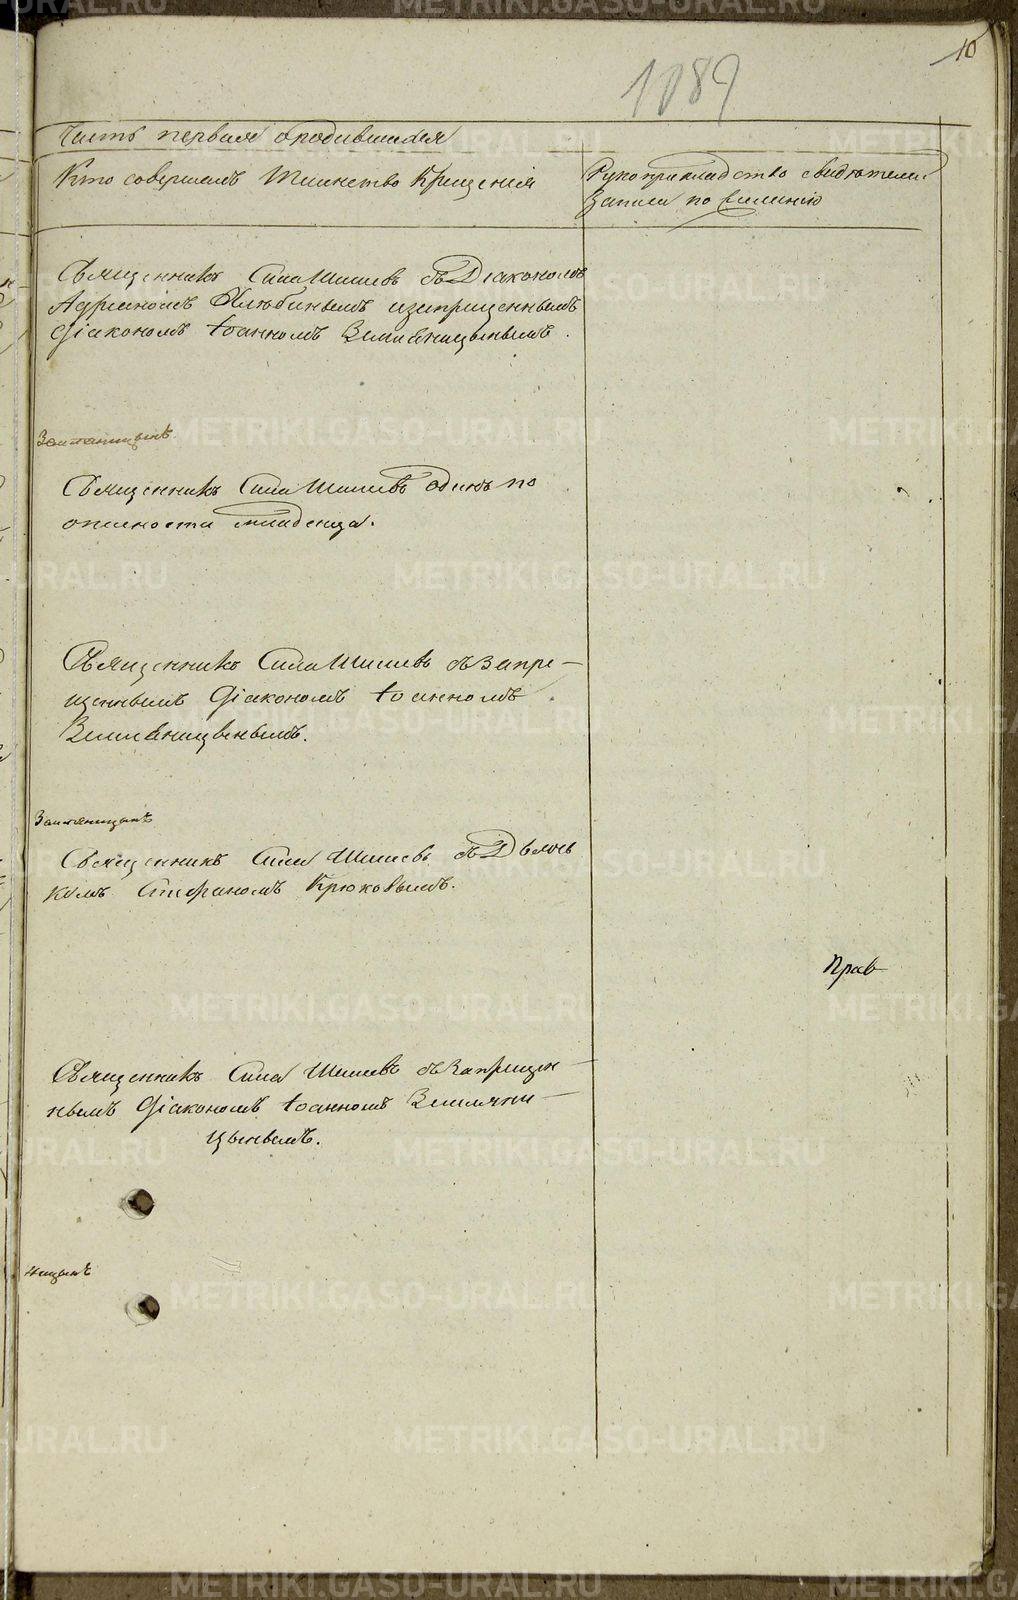 10
1089
Часть первая о родившихся
Кто совершалъ Таинство Крещенія
Рукоприкладство свидѣтелей
Записи по желанію
Священникъ Сила Шишевъ съ Діакономъ
Адріаномъ и запрещеннымъ
Діакономъ Іоанномъ Земляницынымъ.
Священникъ Сила Шишевъ одинъ по
опасности младенца.
Священникъ Сила Шишевъ съ запре-
щеннымъ Діакономъ Іоанномъ
Земляницынымъ.
Священникъ Сила Шишевъ съ Дьяч
комъ Стефаномъ Крюковымъ.
Прав
Священникъ Сила Шишевъ съ Запрещен-
нымъ Діакономъ Іоанномъ Земляни-
цынымъ.
ницынъ
METRIKI.GASO-URAL.RU